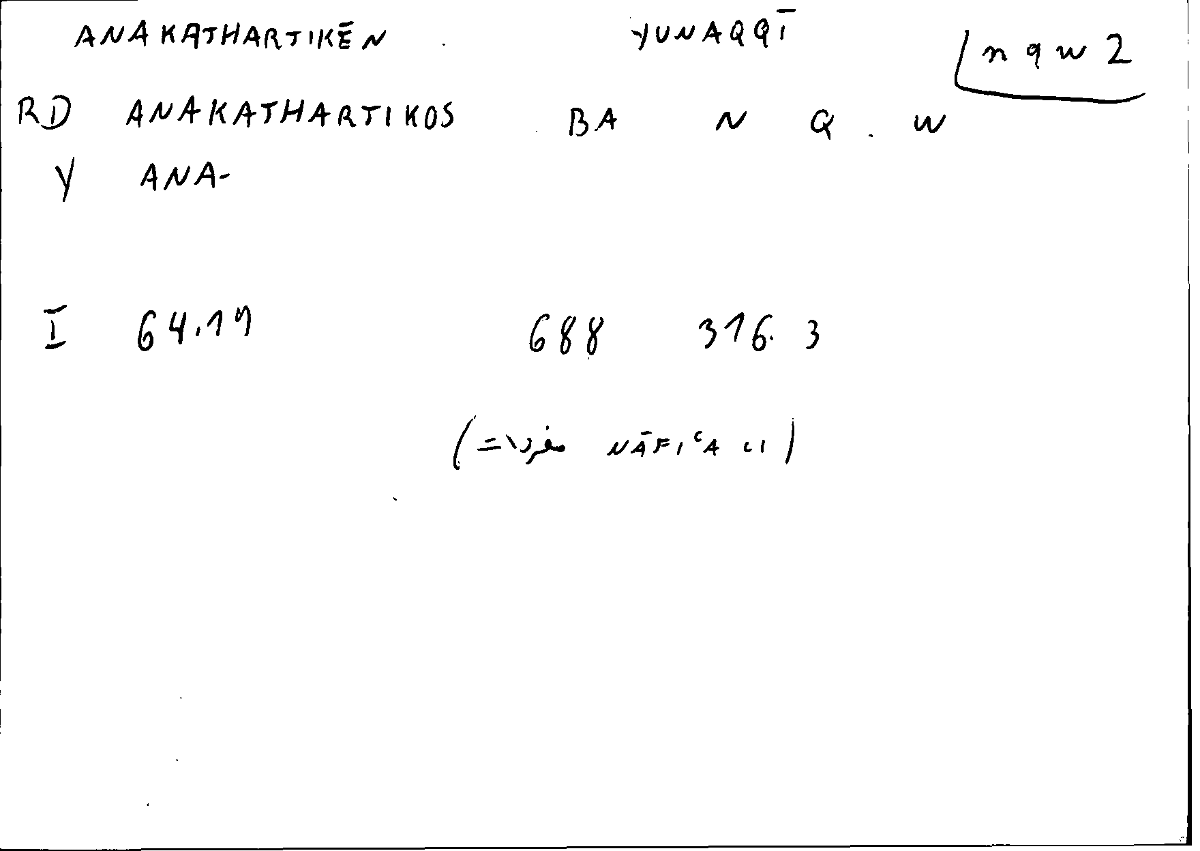 ANAKATHARTIKĒN YUNAQQĪ nqw 2
RD ANAKATHARTIKOS BA N Q . W
Y ANA-
I 64.17 688 316. 3
(مفردات NĀFIʿA LI)